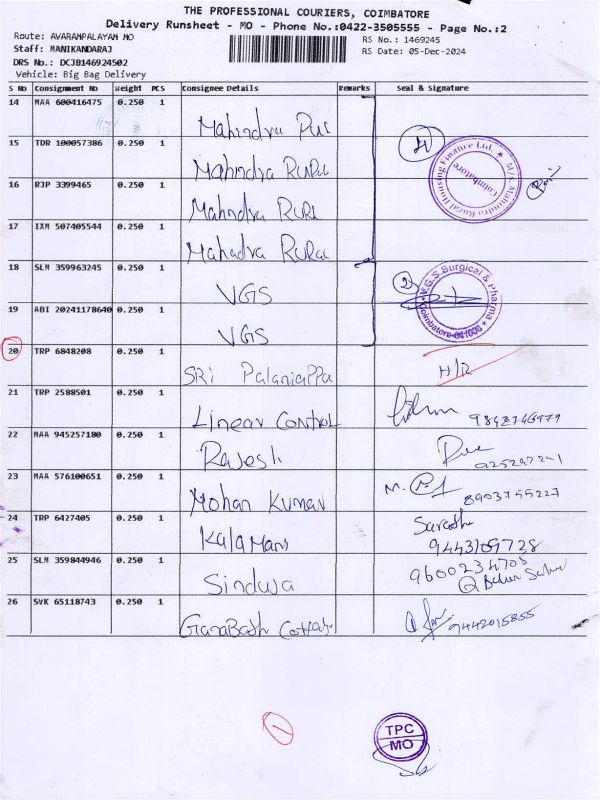 THE PROFESSIONAL COURIERS, COIMBATORE
Delivery Runsheet - MO - Phone No.:0422-3505555 - Page No.:2
Route: AVARAMPALAYAM MO
RS No.: 1469245
Staff: MANIKANDARAJ
RS Date: 05-Dec-2024
DRS No.: DCJB146924502
Vehicle: Big Bag Delivery
S No Consignment No Weight PCS Consignee Details Remarks Seal & Signature
14 MAA 600416475 0.250 1
Mahindra
15 TDR 100057386 0.250 1
Mahindra RURAL
M/s. Mahindra Rural Housing Finance Ltd.
Coimbatore
16 RJP 3399465 0.250 1
Mahindra
17 IXM 507405544 0.250 1
Mahindra RURAL
18 SLM 359963245 0.250 1
VGS
2
V.G.S. Surgical & Pharma
Coimbatore
19 ABI 20241178640 0.250 1
VGS
20 TRP 6848208 0.250 1
SRI Palaniappa
21 TRP 2588501 0.250 1
Linear Control
22 MAA 945257180 0.250 1
Rajesh
23 MAA 576100651 0.250 1
Mohan Kumar
8903755227
24 TRP 6427405 0.250 1
Kala Mani
25 SLM 359844946 0.250 1
Sinduja
9600234705
26 SVK 65118743 0.250 1
9442015855
1
TPC
MO